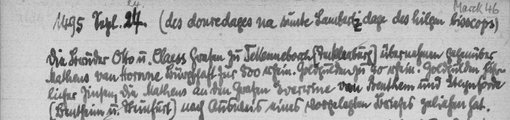 March 46
1495 Sept. 24. (des donredages na sunte Lamberti dage des hilgen bisscops)
Die Brüder Otto u. Claess Grafen zu Tekeneborch (Tecklenburg) übernehmen gegenüber
Mathens van Horrne Bürgschaft für 500 rhein. Goldgulden zu 30 rhein. Goldgulden jähr-
licher Zinsen die Mathens an den Grafen Everwine van Benthem und Steynforde
(Bentheim u. Steinfurt) nach Ausweis eines vorgelegten Briefes geliehen hat.